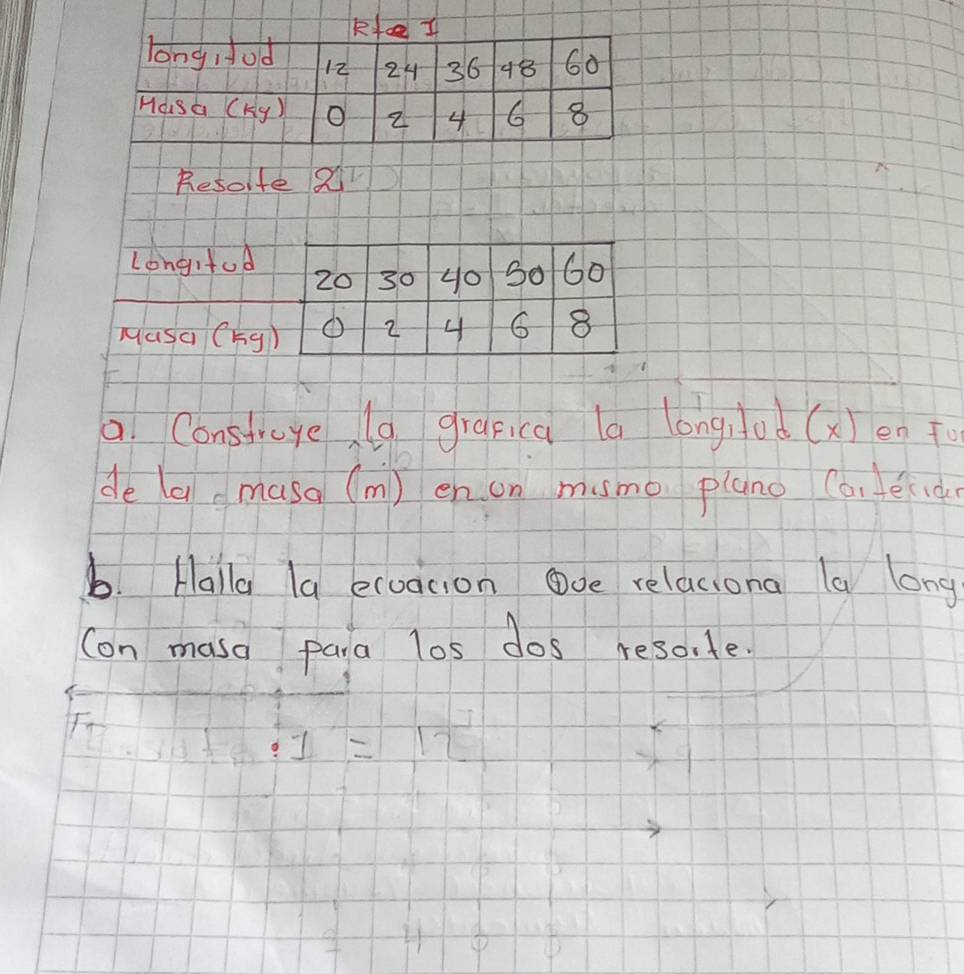 Rte I
longitud 12 24 36 48 60
Masa (Kg) 0 2 4 6 8
Resorte 2
Longitud 20 30 40 50 60
Masa (kg) 0 2 4 6 8
a. Construye la grafica la longitud (x) en
de la masa (m) en un mismo plano
b. Halla la ecuacion Que relaciona la long
Con masa para los dos resorte.
: 1 = 12